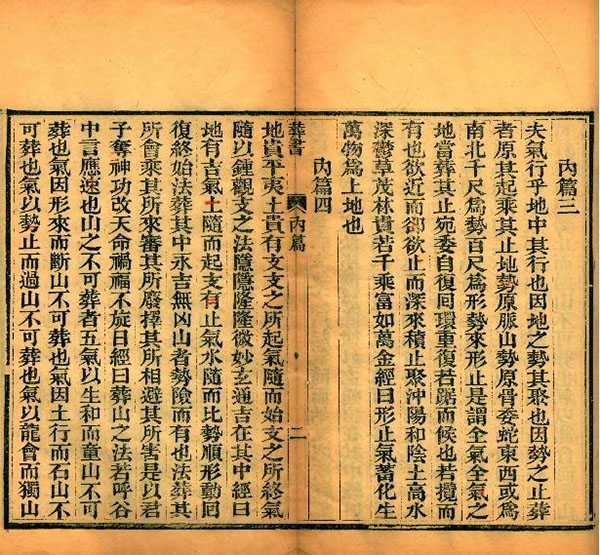 內篇三
夫氣行乎地中其行也因地之勢其聚也因勢之止葬
者原其起乘其止地勢原脈山勢原骨委蛇東西或爲
南北千尺爲勢百尺爲形勢來形止是謂全氣全氣之
地當葬其止宛委自復囘環重復若踞而候也若攬而
有也欲近而卻欲止而深來積止聚沖陽和陰土高水
深鬱草茂林貴若千乘富如萬金經曰形止氣蓄化生
萬物爲上地也
內篇四
葬書 內篇 二
地貴平夷土貴有支支之所起氣隨而始支之所終氣
隨以鍾觀支之法隱隱隆隆微妙玄通吉在其中經曰
地有吉氣土隨而起支有止氣水隨而比勢順形動囘
復終始法葬其中永吉無凶山者勢險而有也法葬其
所會乘其所來審其所廢擇其所相避其所害是以君
子奪神功改天命禍福不旋日經曰葬山之法若呼谷
中言應速也山之不可葬者五氣以生和而童山不可
葬也氣因形來而斷山不可葬也氣因土行而石山不
可葬也氣以勢止而過山不可葬也氣以龍會而獨山